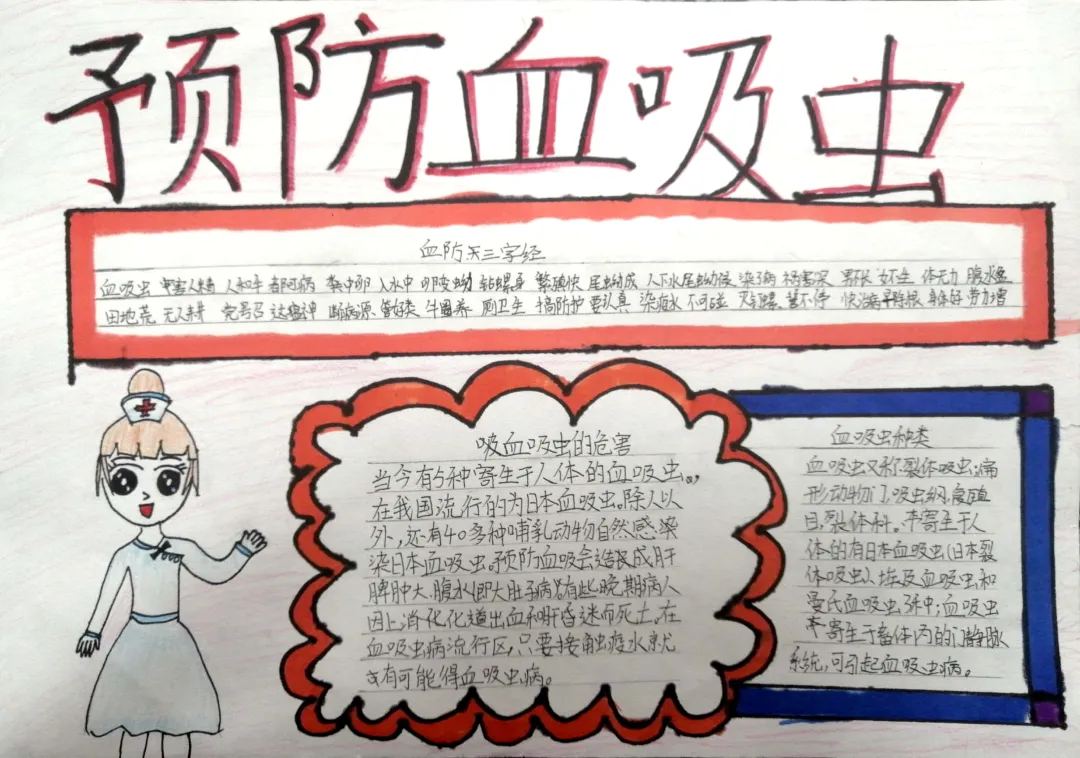 预防血吸虫
血防于三字经
血吸虫 害人精 人和牛 都可病 粪中卵 入水中 可变蚴 钻螺身 繁殖快 尾蚴成 人下水 尾蚴候 染了病 祸害深 男不长 女不生 体无力 腹水鱼
田地荒 无人耕 党号召 送瘟神 断病源 管好粪 牛圈养 厕卫生 搞防护 要认真 染疫水 不可碰 灭钉螺 慧不停 快治病 早除根 身体好 劳力增
吸血吸虫的危害
当今有5种寄生于人体的血吸虫。
在我国流行的为日本血吸虫,除人以
外,还有40多种哺乳动物自然感染
染日本血吸虫。预防血吸会造成肝
脾肿大、腹水(即大肚子病)有些晚期病人
因上消化化道出血和肝昏迷而死亡。在
血吸虫病流行区,只要接触疫水就
有可能得血吸虫病。
血吸虫种类
血吸虫又称裂体吸虫;扁
形动物门,吸虫纲,复殖
目,裂体科。寄生于人
体的有日本血吸虫(日本裂
体吸虫)、埃及血吸虫和
曼氏血吸虫,血吸虫
寄生于畜体内的门静脉
系统,可引起血吸虫病。